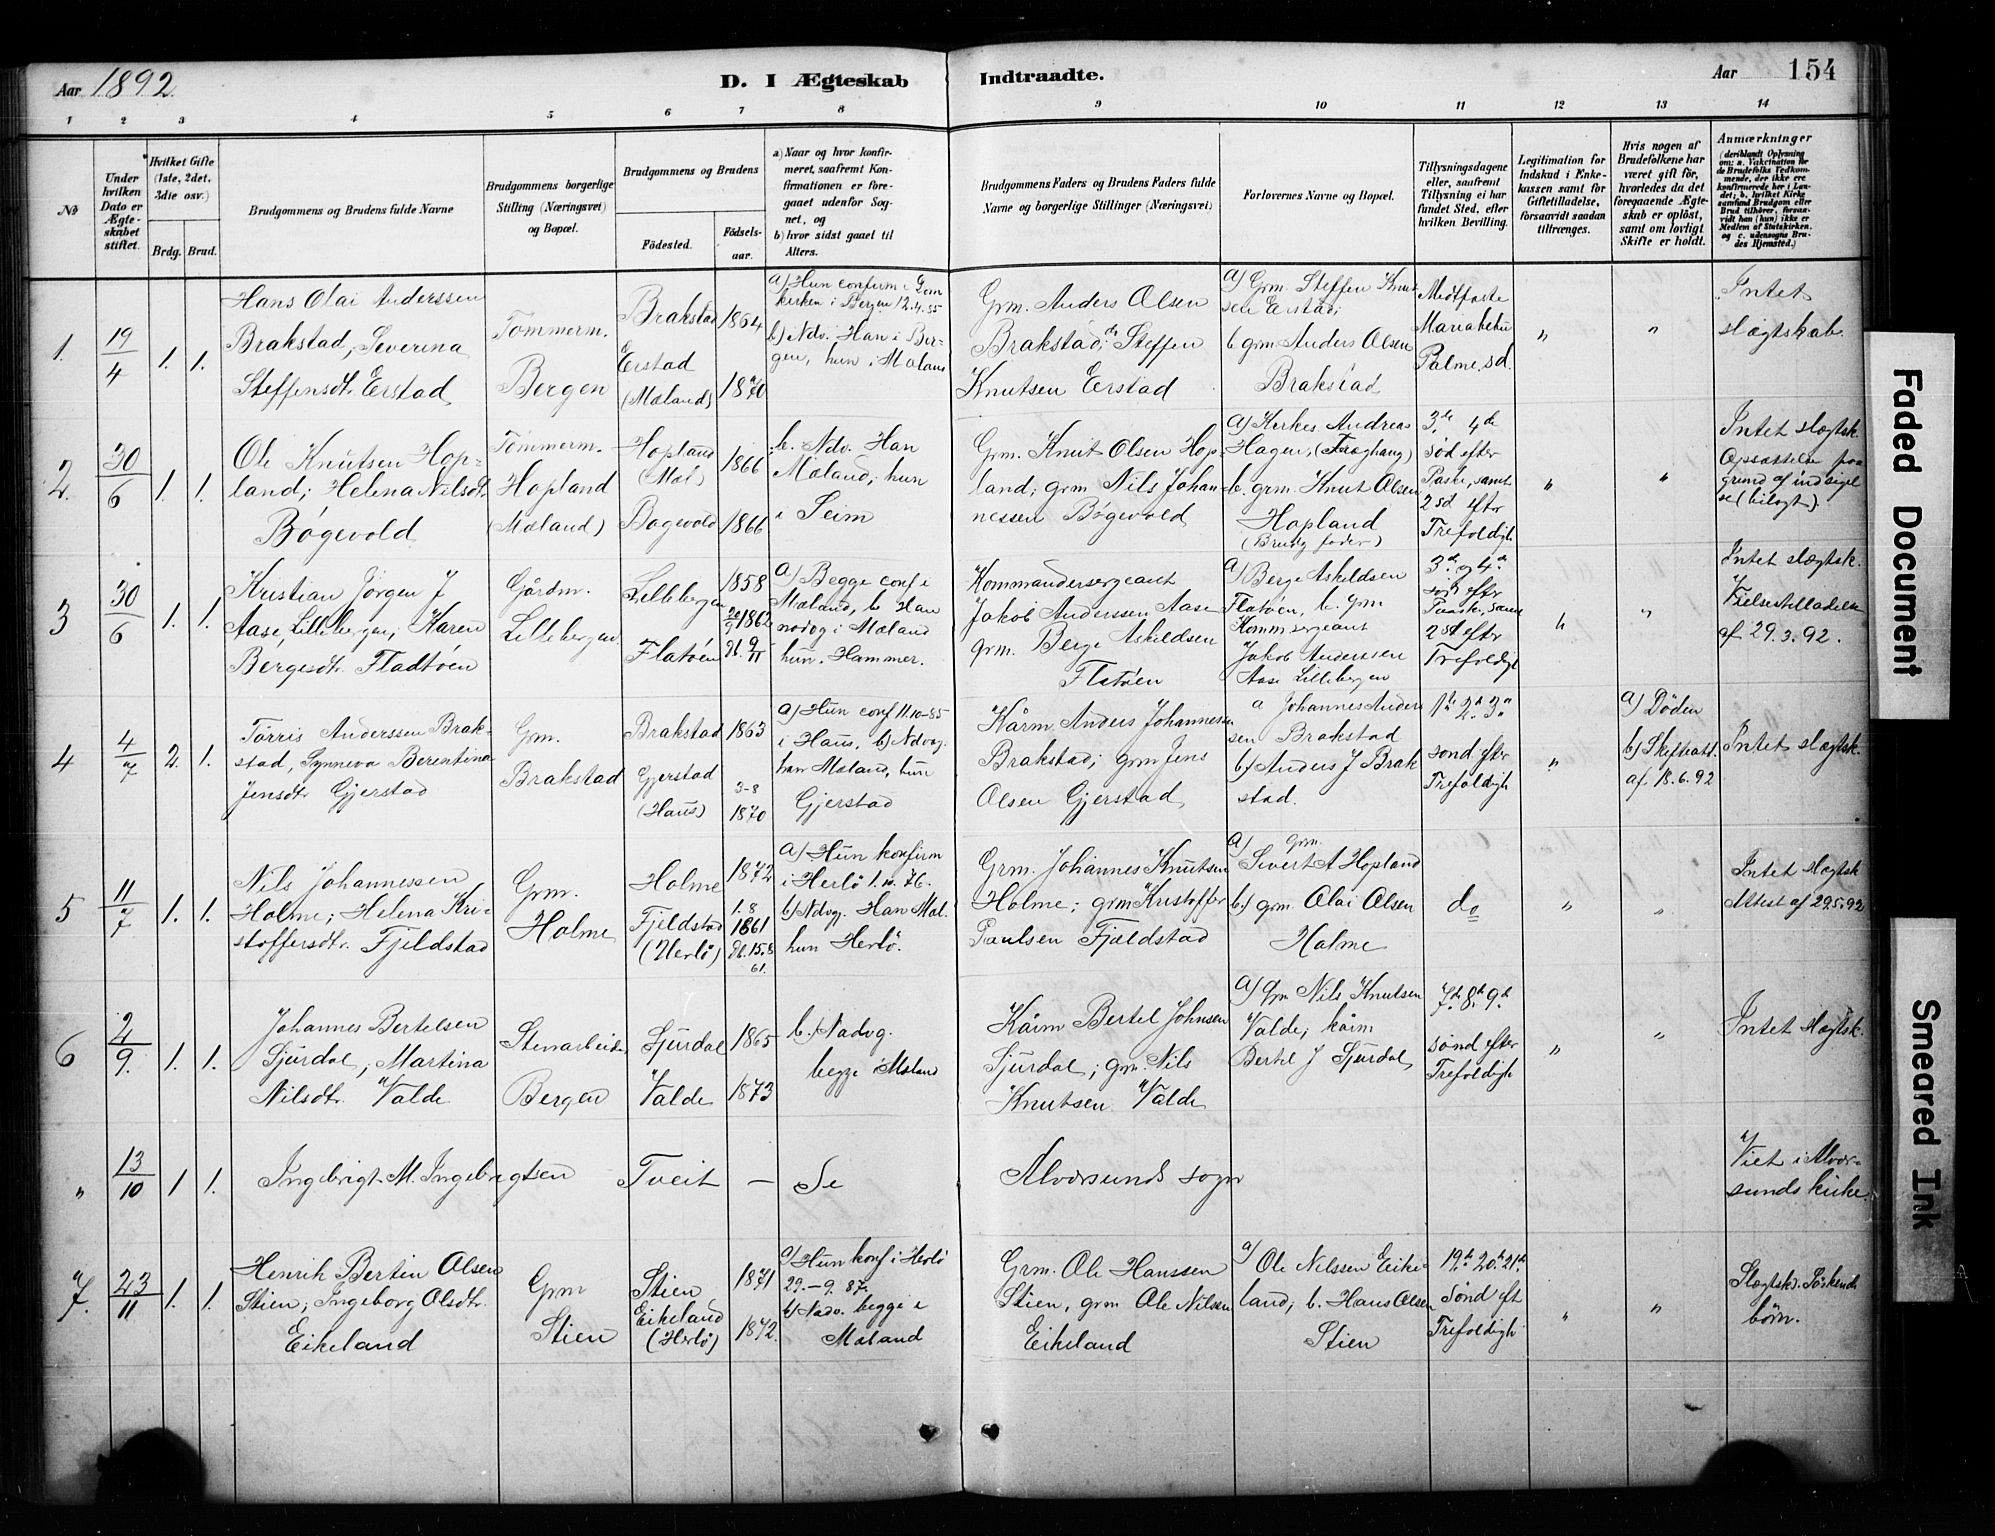 Aar 1892.
D. I Ægteskab Indtraadte.
Aar 154
1 2 3 4 5 6 7 8 9 10 11 12 13 14
No
Under hvilken Dato er Ægteskabet stiftet.
Hvilket Gifte (1ste, 2det, 3die osv.)
Brdg. Brud.
Brudgommens og Brudens fulde Navne
Brudgommens borgerlige Stilling (Næringsvei) og Bopæl.
Brudgommens og Brudens
Födested.
Födsels-aar.
a) Naar og hvor konfirmeret, saafremt Konfirmationen er foregaaet udenfor Sognet, og
b) hvor sidst gaaet til Alters.
Brudgommens Faders og Brudens Faders fulde Navne og borgerlige Stillinger (Næringsvei)
Forlovernes Navne og Bopæl.
Tillysningsdagene eller, saafremt Tillysning ei har fundet Sted, efter hvilken Bevilling.
Legitimation for Indskud i Enkekassen samt for Giftetilladelse, forsaavidt saadan tiltrænges.
Hvis nogen af Brudefolkene har været gift för, hvorledes da det foregaaende Ægteskab er oplöst, samt om lovligt Skifte er holdt.
Anmærkninger
(deriblandt Oplysning om: a. Vakcination for de Brudefolks Vedkommende, der ikke ere konfirmerede her i Landet; b. hvilket Kirkesamfund Brudgom eller Brud tilhörer, forsaavidt han (hun) ikke er Medlem af Statskirken, og c. udensogns Brudes Hjemsted.)
1. 19/4 1. 1.
Hans Olai Anderssen
Brakstad, Severina
Steffensdtr. Eerstad
Tømmerm.
Bergen
Brakstad 1864
Eerstad
(Mæland) 1870
a) Hun confirm i Dom
kirken i Bergen 12.4.85
b) Ndv. Han i Ber-
gen, hun i Mæland
Grm. Anders Olsen
Brakstad; Steffen
Knutsen Eerstad
a) Grm. Steffen Knut
sen Eerstad;
b. grm Anders Olsen
Brakstad
Midtfaste
Mariabebu
Palme sd.
" "
Intet
slægtskab.
2. 30/6 1. 1.
Ole Knutsen Hop-
land; Helena Nilsdtr.
Bøgevold
Tømmerm.
Hopland
(Mæland)
Hopland 1866
(Mæl)
Bøgevold 1866
b. Ndv. Han
Mæland, hun
i Seim
Grm. Knut Olsen Hop-
land; grm Nils Johan-
nessen Bøgevold
a) Kirkes. Andreas
Hagen,
b. grm. Knut Olsen
Hopland
(Brudg fader)
3de 4de
sød efter
Paske, samt
2 sd efter
Trefoldigh
" "
Intet slægtsk.
Opsættelse paa
grund af indsigel
se (bilagt).
3 30/6 1. 1.
Kristian Jørgen J
Aase, Lillebergen; Karen
Bergesdtr. Fladtøen
Gårdm.
Lillebergen
Lillebergen 1858
Flatøen
a) Begge conf i
Mæland, b Han
nadvg i Mæland
hun. Hammer.
Kommandersergeant
Jakob Anderssen Aase
grm. Berge Askildsen
Flatøen
a) Berge Askildsen
Flatøen, b. grm
Komm sergeant
Jakob Anderssen
Aase Lillebergen
3de og 4de
sød efter
Paask, samt
2 sd efter
Trefoldigh
" "
Intet slægtsk.
Vielsestilladelse
af 29.3.92.
4 4/7 2. 1.
Tørris Anderssen Brak-
stad, Synneva Berentina
Jensdtr Gjerstad
Grm.
Brakstad
Brakstad 1863
Gjerstad 3-8
(Haus) 1870
a) Hun conf 11.10-85
i Haus, b) Ndvg.
han Mæland, hun
Gjerstad
Kårm Anders Johannesen
Brakstad; grm Jens
Olsen Gjerstad
a Johannes Anders
sen Brakstad
b) Anders J Brak
stad.
1ste 2de 3de
sond efter
Trefoldigh
"
a) Døden
b) Skifteatt.
af 18.6.92
Intet slægtsk.
5 11/7 1. 1.
Nils Johannessen
Holme; Helena Kri-
stoffersdtr. Fjeldstad
Grm.
Holme
Holme 1872
Fjeldstad 1.8 1861
(Herlö) db. 15.8 61.
a) Hun konfirm
i Herlö 1.10.76.
b) Ndvg. Han Mæl.
hun Herlö.
Grm. Johannes Knutsen
Holme; grm Kristoffer
Paulsen Fjeldstad
a) Grm. Sivert A Hopland
b.) grm. Olai Olsen
Holme
do
" "
Intet slægtsk
Attest af 29.5.92
6 2/9. 1. 1.
Johannes Bertelsen
Sjurdal, Martina
Nilsdtr. Valde
Stenarbeider
Bergen
Sjurdal 1865
Valde 1873
b.) Nadvg.
begge i Mæland
Kårm Bertel Johnsen
Sjurdal; grm. Nils
Knutsen Valde
a) Grm Nils Knutsen
Valde; kårm
Bertel J Sjurdal
7de 8de 9de
sønd efter
Trefoldigh
" "
Intet slægtsk.
" 13/10 1 1.
Ingebrigt M. Ingebrigtsen Tveit — Se Alversunds sogn
Viet i Alver-
sunds kirke.
7. 23/11 1. 1.
Henrik Bertin Olsen
Stien; Ingeborg Olsdtr.
Eikeland
Grm
Stien
Stien 1871
Eikeland
(Herlö) 1872.
a) Hun konf i Herlö
29.-9.87.
b) Nadv. begge i
Mæland
Grm. Ole Hanssen
Stien, grm Ole Nilsen
Eikeland
a) Ole Nilssen Eike-
land, b. Hans Olsen
Stien
19de 20de 21de
Sønd eft
Trefoldigh
" "
Slægtsk. Søskende
børn.
Faded Document
Smeared Ink